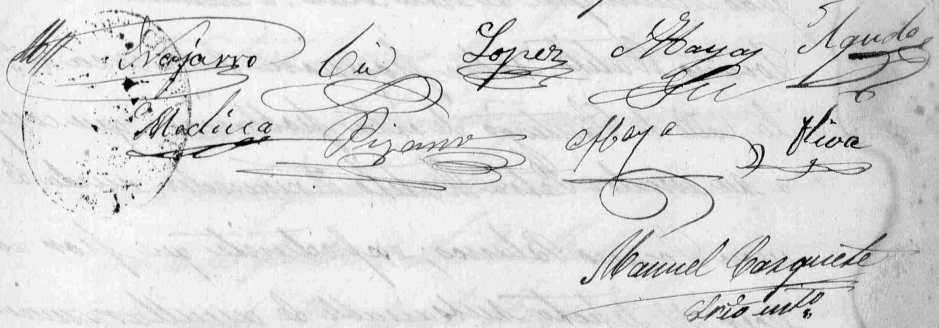 Navarro Cid Lopez Maya Agudo
Medina Pizarro Maya Oliva
Manuel Cazquete
Srio intº